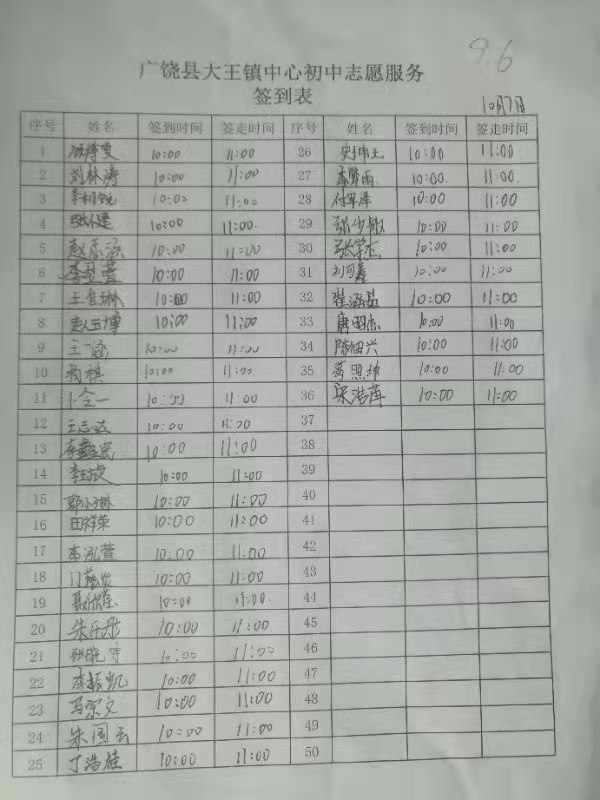 9.6
广饶县大王镇中心初中志愿服务
签到表
10月7日
序号 姓名 签到时间 签走时间 序号 姓名 签到时间 签走时间
1 10:00 11:00 26 10:00 11:00
2 刘林涛 10:00 11:00 27 10:00 11:00
3 10:00 11:00 28 10:00 11:00
4 10:00 11:00 29 张少敏 10:00 11:00
5 赵 10:00 11:00 30 张学杰 10:00 11:00
6 10:00 11:00 31 刘可鑫 10:00 11:00
7 王佳琳 10:00 11:00 32 崔涵茹 10:00 11:00
8 10:00 11:00 33 10:00 11:00
9 王涵 10:00 11:00 34 陈佃兴 10:00 11:00
10 10:00 11:00 35 葛照坤 10:00 11:00
11 10:00 11:00 36 宋浩萍 10:00 11:00
12 王志达 10:00 11:00 37
13 李鑫宸 10:00 11:00 38
14 李 10:00 11:00 39
15 郭小琳 10:00 11:00 40
16 田祥荣 10:00 11:00 41
17 李泓萱 10:00 11:00 42
18 10:00 11:00 43
19 聂欣 10:00 11:00 44
20 朱乐彤 10:00 11:00 45
21 10:00 11:00 46
22 李振凯 10:00 11:00 47
23 马宗文 10:00 11:00 48
24 朱国云 10:00 11:00 49
25 丁浩桂 10:00 11:00 50